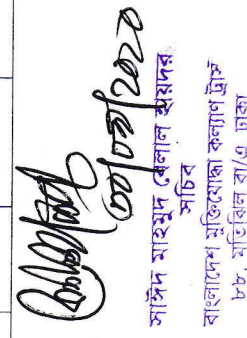 ৩০/০৬/২০২০
সাঈদ মাহমুদ বেলাল হায়দর
সচিব
বাংলাদেশ মুক্তিযোদ্ধা কল্যাণ ট্রাস্ট
৮৮, মতিঝিল বা/এ, ঢাকা